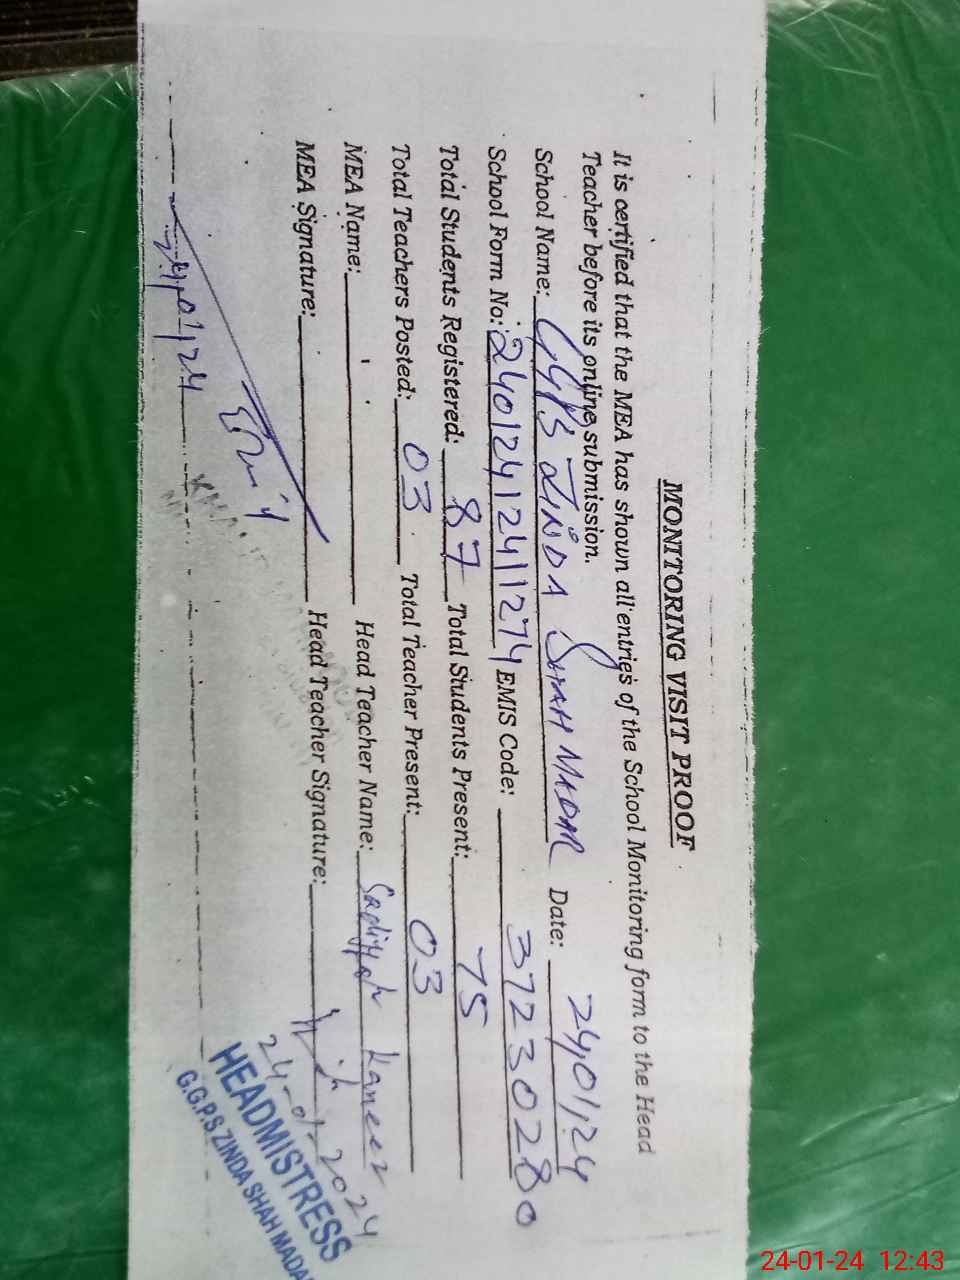 MONITORING VISIT PROOF
It is certified that the MEA has shown all entries of the School Monitoring form to the Head
Teacher before its online submission.
School Name: GGPS ZINDA SHAH MADAR Date: 24,01,24
School Form No: 240124124111274 EMIS Code: 37230280
Total Students Registered: 87 Total Students Present: 75
Total Teachers Posted: 03 Total Teacher Present: 03
MEA Name: Head Teacher Name: Sadiyah Kaneez
MEA Signature: Head Teacher Signature:
24,01,24
24-01-2024
HEADMISTRESS
G.G.P.S ZINDA SHAH MADA
24-01-24 12:43